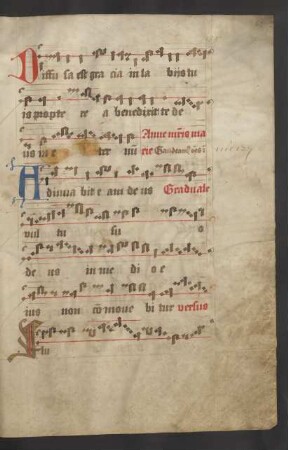 Diffu sa est gra cia in la bijs tu
is propte re a benedixit te de
us in e ter nu Anne mris ma
rie Gaudeamus oes i
Adiuua bit eam de us Graduale
vul tu su o
de us in me di o e
ius non comoue bi tur versus